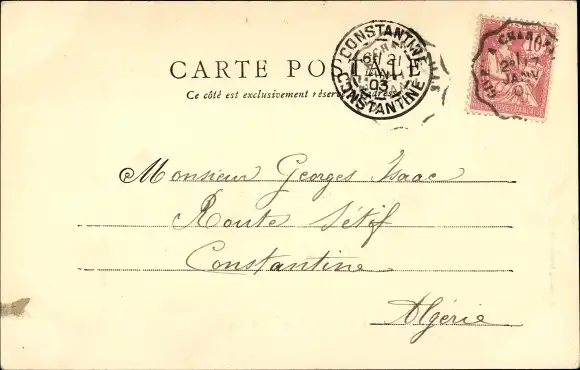 CARTE POSTALE
Ce côté est exclusivement réservé
CONSTANTINE
21
03
CONSTANTINE
10
Monsieur Georges Isaac
Route Sétif
Constantine
Algérie